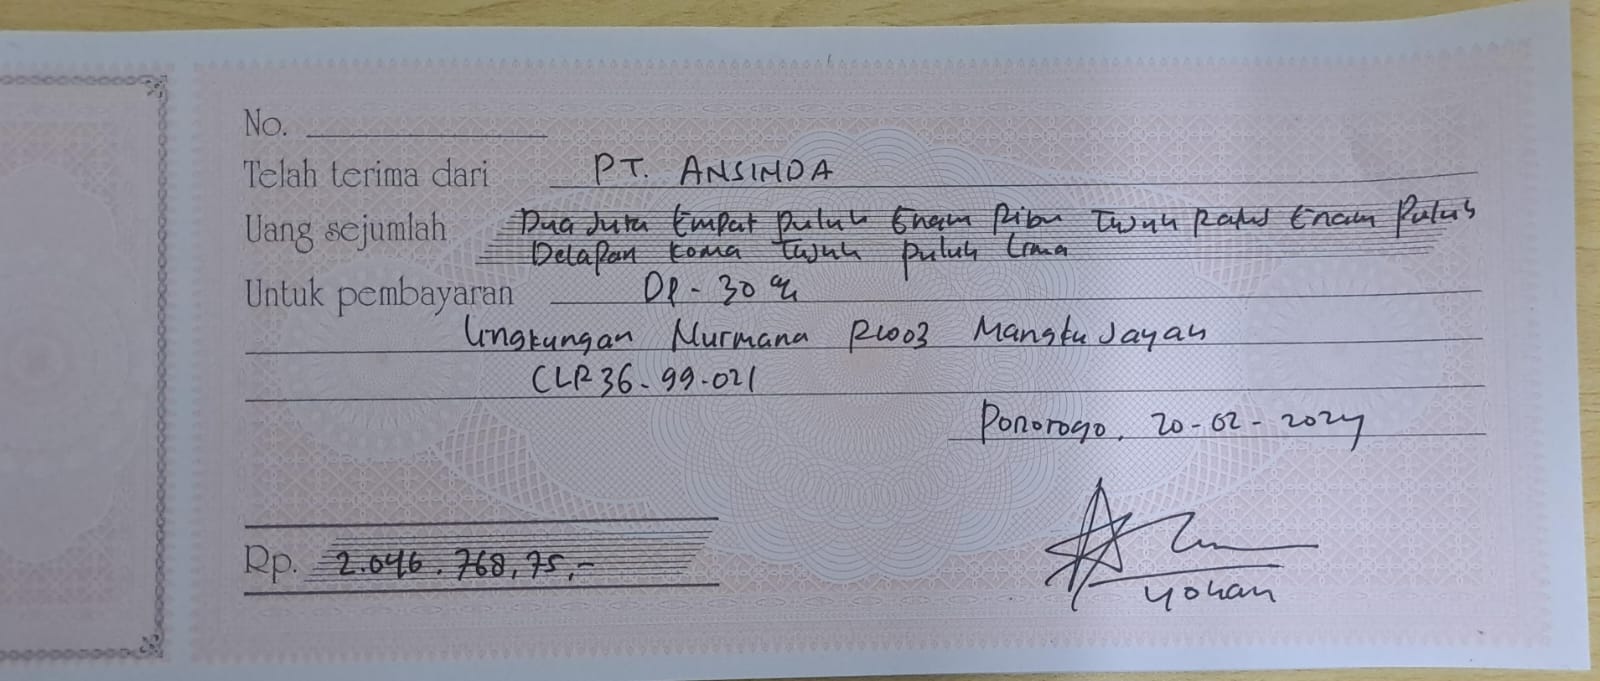 No.
Telah terima dari PT. ANSINDA
Uang sejumlah Dua Juta Empat puluh Enam Ribu Tujuh Ratus Enam Puluh
Delapan koma tujuh puluh lima
Untuk pembayaran DP - 30 %
lingkungan Nurmana RW03 Mangku Jayan
CLR36-99-021
Ponorogo, 20-02-2024
Rp. 2.046.768,75,-
Yohan